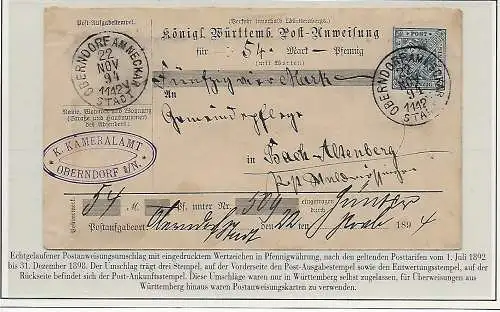 (Verkehr innerhalb Württembergs.)
Post-Aufgabestempel.
Königl. Württemb. Post-Anweisung
für 54. Mark — Pfennig
(mit Worten)
Fünfzig vier Mark
An
Gemeindepflege
in Bach-Altenberg
OBERNDORF AM NECKAR
22
NOV
94
11-12 V
STADT
POST
OBERNDORF AM NECKAR
22
94
11-12 V
STADT
Name, Wohnort und Wohnung
(Straße und Hausnummer)
des Absenders.
K. KAMERALAMT
OBERNDORF a/N.
54 M. Pf. unter Nr. 509 eingetragen durch
Postaufgabeort Oberndorf Stadt den 22 189 4
Echtgelaufener Postanweisungsumschlag mit eingedrucktem Wertzeichen in Pfennigwährung, nach den geltenden Posttarifen vom 1. Juli 1892
bis 31. Dezember 1898. Der Umschlag trägt drei Stempel, auf der Vorderseite den Post-Ausgabestempel sowie den Entwertungsstempel, auf der
Rückseite befindet sich der Post-Ankunftsstempel. Diese Umschläge waren nur in Württemberg selbst zugelassen, für Überweisungen aus
Württemberg hinaus waren Postanweisungskarten zu verwenden.